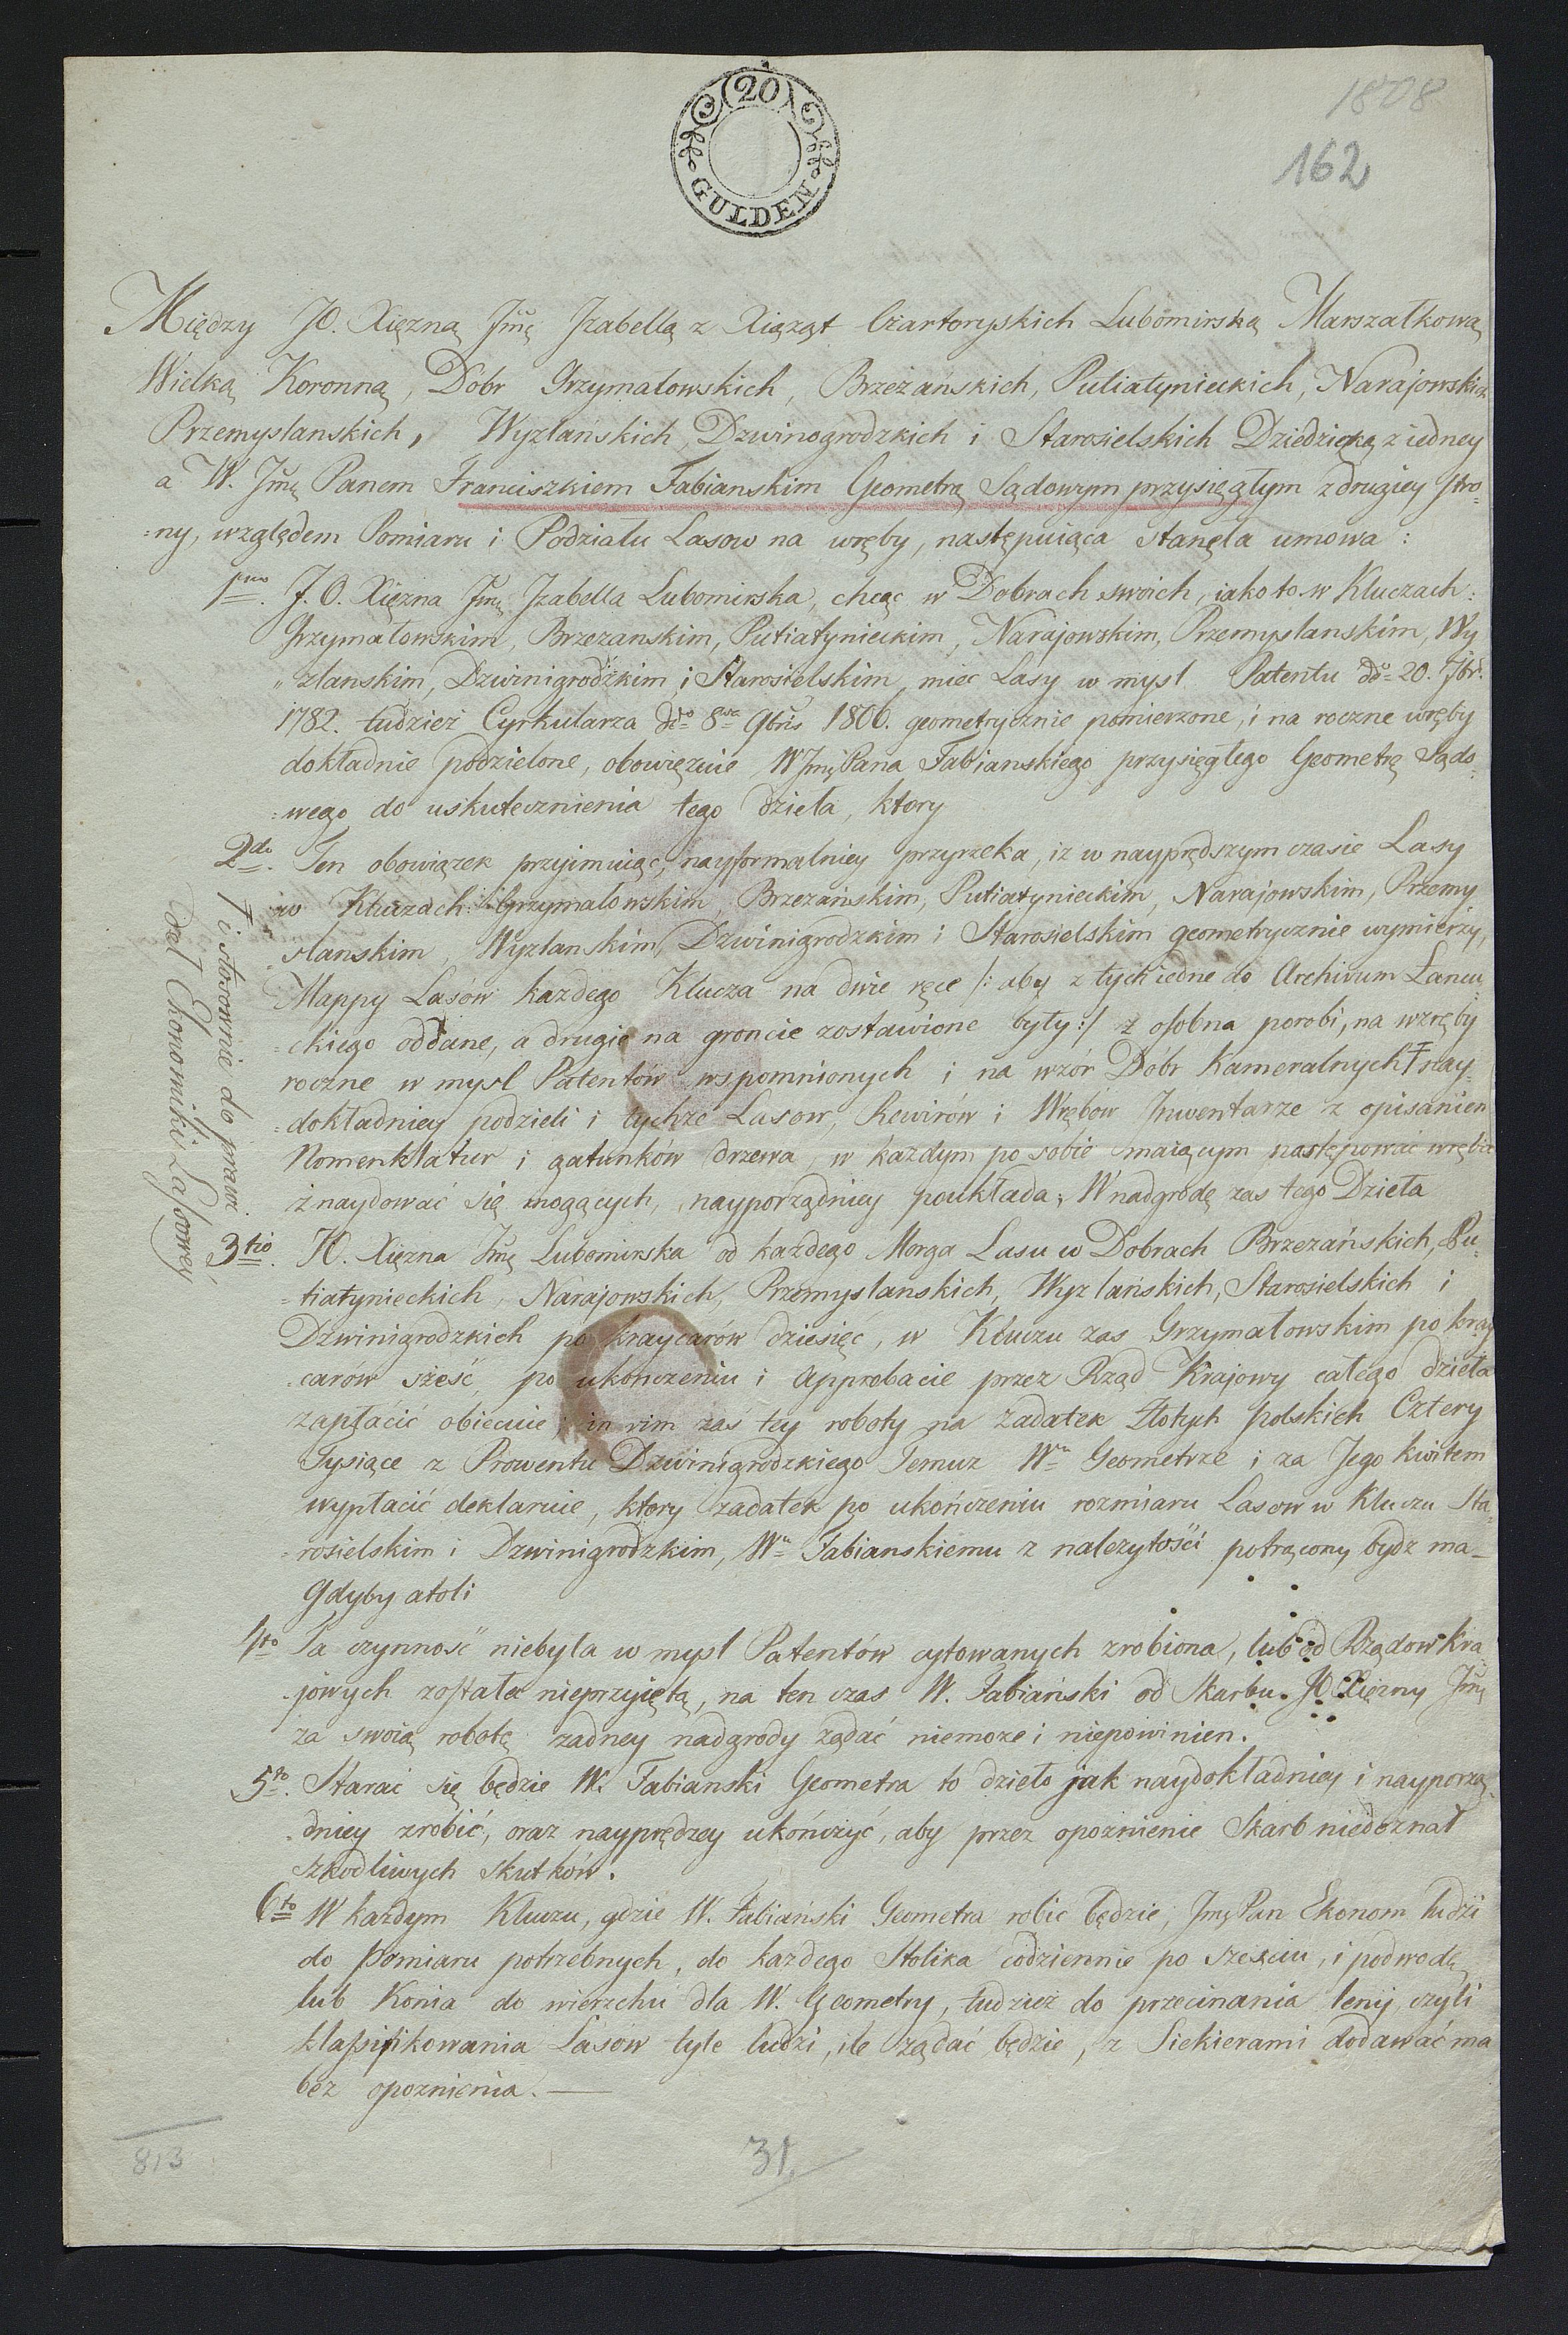 20
GULDEN
1808
162
Między JO. Xięzną Jmę Jzabellą z Xiąząt Czartoryskich Lubomirską Marszałkową
Wielką Koronną, Dobr Grzymałowskich, Brzeżańskich, Putiatynieckich, Narajowskich
Przemyslanskich, Wyzlańskich Dzwinogrodzkich i Starosielskich Dziedziczką z iedney
a W. Jmę Panem Franciszkiem Fabianskim Geometrą Sądowym przysięgłym z drugiey stro-
=ny, względem Pomiaru i Podziału Lasow na wręby, następuiąca stanęła umowa:
1mo. J.O. Xięzna Jmę Jzabella Lubomirska, chcąc w Dobrach swoich, iako to w Kluczach:
Grzymałowskim, Brzezanskim, Putiatynieckim, Narajowskim, Przemyslanskim, Wy
"zlanskim, Dzwinigrodzkim i Starosielskim, miec Lasy w mysl Patentu ddo 20. 7br.
1782. tudzież Cyrkularza ddto 8va 9bris 1806. geometrycznie pomierzone, i na roczne wręby
dokładnie podzielone, obowięzuie WJmę Pana Fabianskiego przysięgłego Geometrę Sądo-
=wego do uskutecznienia tego dzieła, ktory
2do. Ten obowiązek przyimuiąc, nayformalniey przyrzeka, iz w nayprędszym czasie Lasy
w Kluczach: Grzymałowskim, Brzezańskim, Putiatynieckim, Narajowskim, Przemy
=slanskim, Wyzlanskim, Dzwinigrodzkim i Starosielskim geometrycznie wymierzy,
Mappy Lasów kazdego Klucza na dwie ręce /: aby z tych iedne do Archivum Łancu
=ckiego oddane, a drugie na groncie zostawione były :/ z osobna porobi, na wzręby
roczne w mysl Patentów wspomnionych i na wzór Dóbr Kameralnych Ŧ nay-
=dokładniey podzieli i tychże Lasow, Rewirów i Wrębów Jnwentarze z opisaniem
Nomenklatur i gatunków drzewa, w kazdym po sobie maiącym następować wrębie
znaydować się mogących, nayporządniey poukłada; W nadgrodę zas tego Dzieła
Ŧ i stosownie do praw.
dzeł Ekonomiki Lasowey
3tio. JO. Xięzna Jmę Lubomirska od kazdego Morga Lasu w Dobrach Brzezańskich, Pu-
=tiatynieckich, Narajowskich, Przemyslanskich, Wyzlańskich, Starosielskich i
Dzwinigrodzkich po kraycarów dziesięć, w Kluczu zas Grzymałowskim po kray
=carów sześć, po ukończeniu i approbacie przez Rząd Krajowy całego dzieła
zapłacić obiecuie; in vim zas tey roboty na zadatek Złotych polskich Cztery
Tysiące z Prowentu Dzwinigrodzkiego Temuz Wu Geometrze i za Jego kwitem
wypłacić deklaruie, który zadatek po ukończeniu rozmiaru Lasow w Kluczu Sta
=rosielskim i Dzwinigrodzkim, Wu Fabianskiemu z nalezytości potrącony bydz ma_
Gdyby atoli
4to Ta czynność niebyla w mysl Patentów cytowanych zrobiona, lub od Rządow Kra
=jowych została nieprzyiętą, na ten czas W. Fabiański od Skarbu JO Xięzny Jmę
za swoią robotę zadney nadgrody ządać niemoze i niepowinien.
5to. Starać się będzie W. Fabianski Geometra to dzieło jak naydokładniey i nayporzą
=dniey zrobić, oraz nayprędzey ukończyć, aby przez opoznienie Skarb niedoznał
szkodliwych skutków.
6to W kazdym Kluczu, gdzie W. Fabiański Geometra robic będzie, Jmę Pan Ekonom ludzi
do pomiaru potrzebnych, do kazdego Stolika codziennie po sześciu, i podwodę
lub Konia do wierzchu dla W. Geometry, tudzież do przecinania lenij czyli
klassyfikowania Lasów tyle ludzi, ile ządać będzie, z Siekierami dodawać ma
bez opoznienia.
813
31